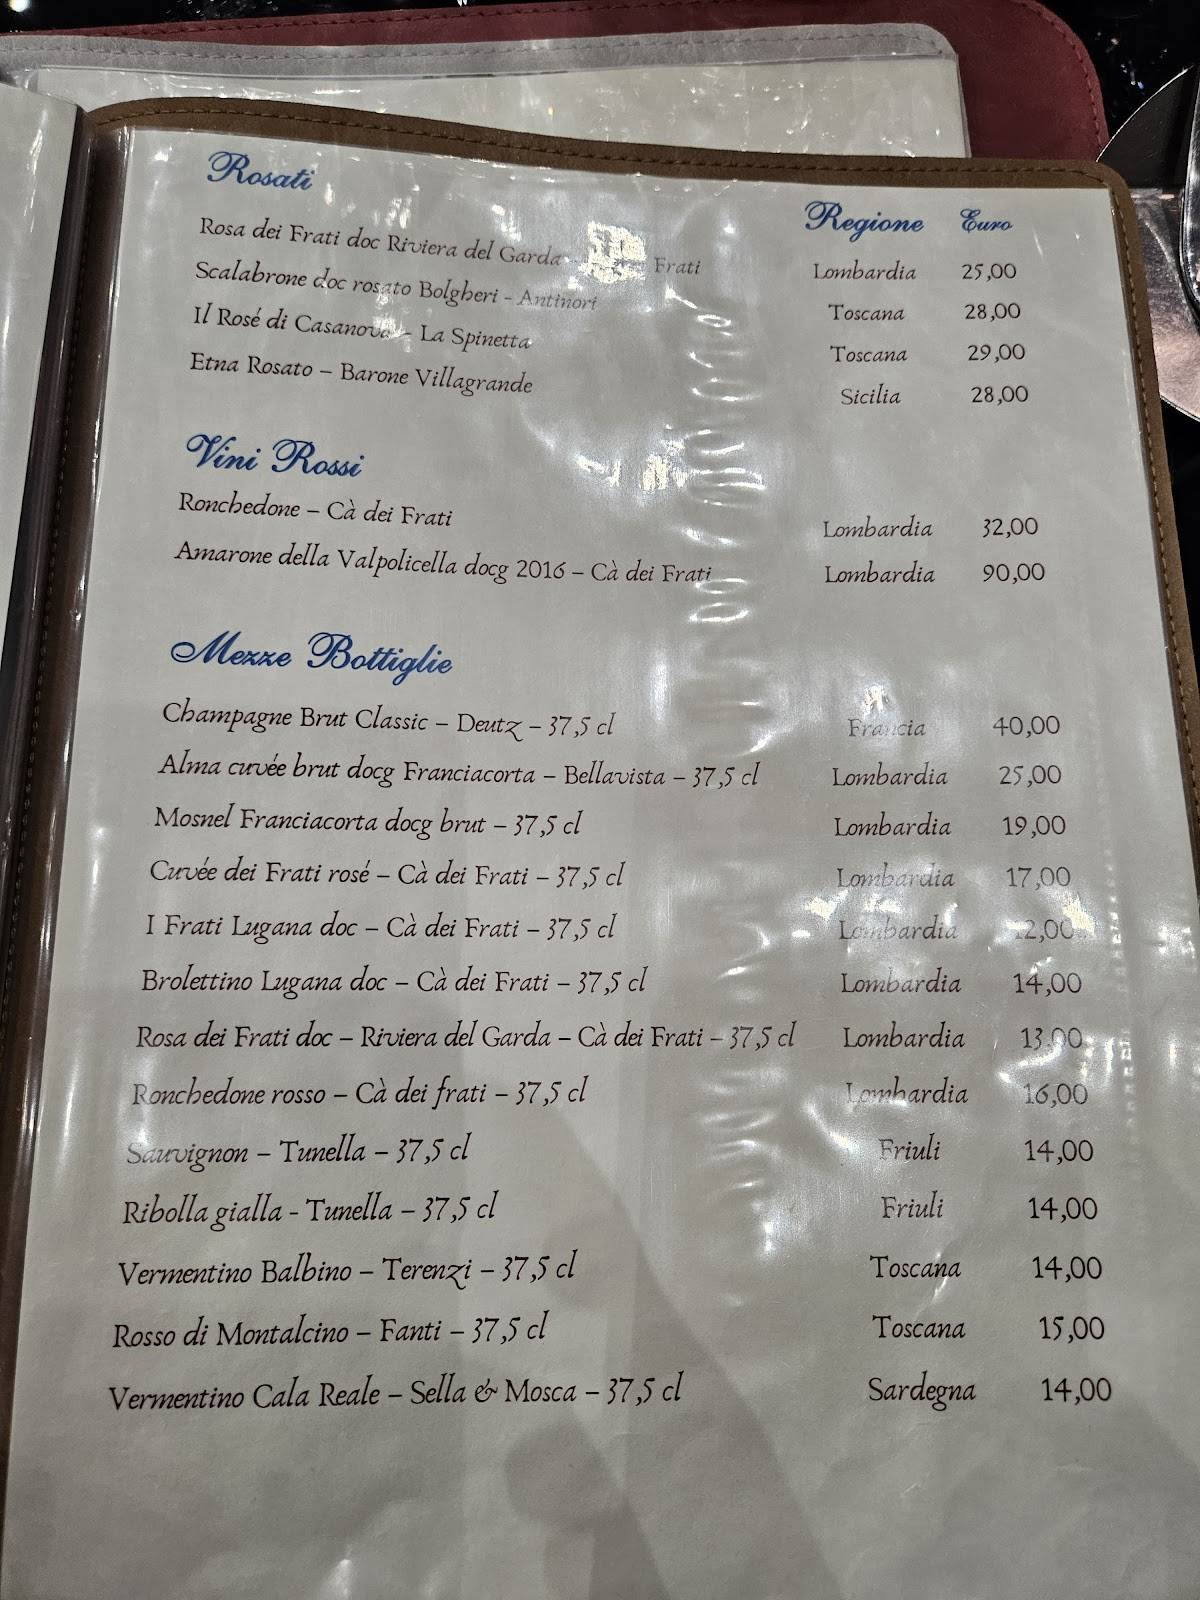 Rosati Regione Euro
Rosa dei Frati doc Riviera del Garda Frati Lombardia 25,00
Scalabrone doc rosato Bolgheri - Antinori Toscana 28,00
Il Rosé di Casanova - La Spinetta Toscana 29,00
Etna Rosato – Barone Villagrande Sicilia 28,00
Vini Rossi
Ronchedone – Cà dei Frati Lombardia 32,00
Amarone della Valpolicella docg 2016 – Cà dei Frati Lombardia 90,00
Mezze Bottiglie
Champagne Brut Classic – Deutz – 37,5 cl Francia 40,00
Alma cuvée brut docg Franciacorta – Bellavista – 37,5 cl Lombardia 25,00
Mosnel Franciacorta docg brut – 37,5 cl Lombardia 19,00
Cuvée dei Frati rosé – Cà dei Frati – 37,5 cl Lombardia 17,00
I Frati Lugana doc – Cà dei Frati – 37,5 cl Lombardia
Brolettino Lugana doc – Cà dei Frati – 37,5 cl Lombardia 14,00
Rosa dei Frati doc – Riviera del Garda – Cà dei Frati – 37,5 cl Lombardia 13,00
Ronchedone rosso – Cà dei frati – 37,5 cl Lombardia 16,00
Sauvignon – Tunella – 37,5 cl Friuli 14,00
Ribolla gialla - Tunella – 37,5 cl Friuli 14,00
Vermentino Balbino – Terenzi – 37,5 cl Toscana 14,00
Rosso di Montalcino – Fanti – 37,5 cl Toscana 15,00
Vermentino Cala Reale – Sella & Mosca – 37,5 cl Sardegna 14,00